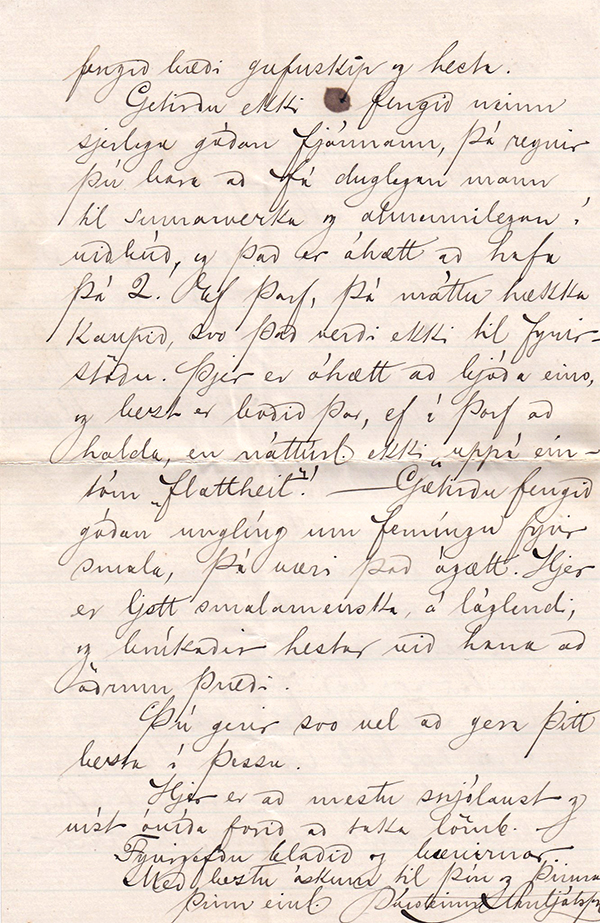 fengið bæði gufuskip og hesta.
Getirðu ekki fengið neinn
sjerlega góðan fjármann, þá reynir
þú bara að fá duglegan mann
til sumarverka og almennilegan í
viðbúð, og það er óhætt að hafa
þá 2. Ef þarf, þá máttu hækka
kaupið, svo það verði ekki til fyrir-
stöðu. Þjer er óhætt að bjóða eins,
og best er boðið þar, ef á þarf að
halda, en náttúrl. ekki uppá ein-
tóm „flattheit“! — Gætirðu fengið
góðan ungling um fermíngu fyrir
smala, þá væri það ágætt. Hjer
er ljett smalamenska, á láglendi,
og brúkaðir hestar við hana að
öðrum þræði.
Þú gerir svo vel að gera þitt
besta í þessu.
Hjer er að mestu snjólaust og
víst óvíða farið að taka lömb.
Fyrirgefðu blaðið og
Með bestu óskum til þín og þinna
þinn einl.